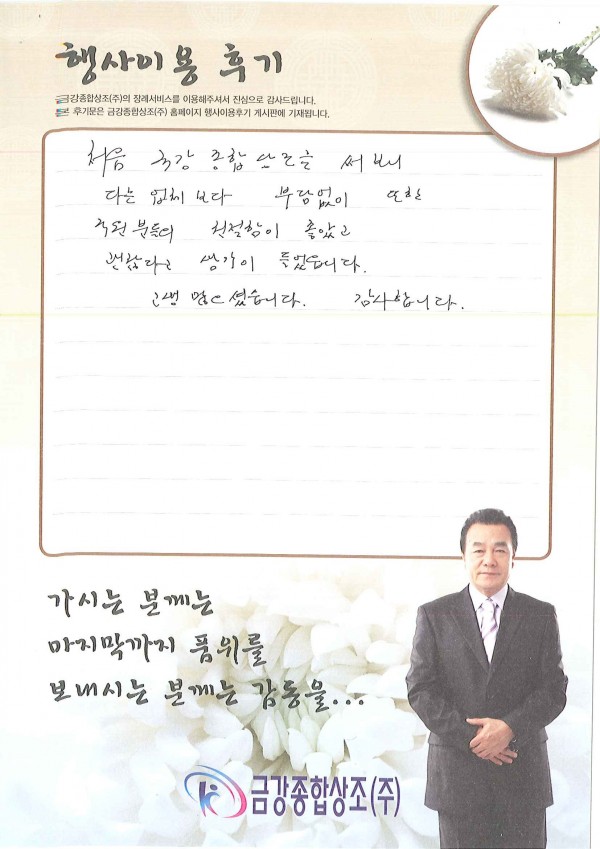 행사이용 후기
금강종합상조(주)의 장례서비스를 이용해주셔서 진심으로 감사드립니다.
본 후기문은 금강종합상조(주) 홈페이지 행사이용후기 게시판에 기재됩니다.
처음 금강 종합 상조를 써 보니
다른 업체 보다 부담없이 또한
직원 분들의 친절함이 좋았고
괜찮다고 생각이 들었습니다.
고생 많으셨습니다. 감사합니다.
가시는 분께는
마지막까지 품위를
보내시는 분께는 감동을...
금강종합상조(주)